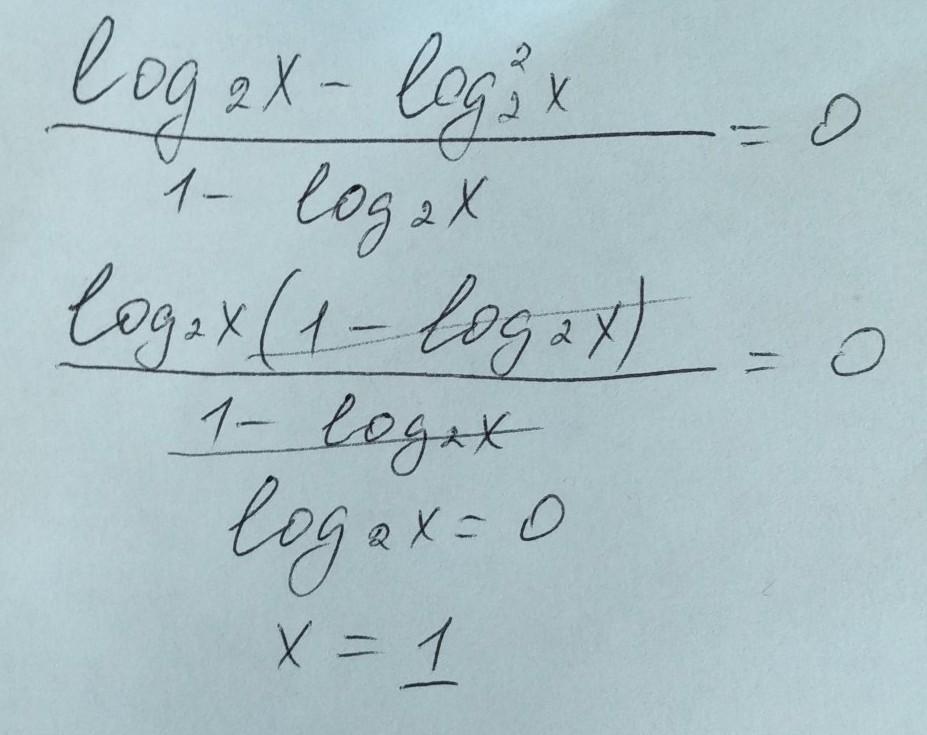 log₂x - log₂²x
_____________ = 0
1 - log₂x
log₂x(1 - log₂x)
_____________ = 0
1 - log₂x
log₂x = 0
x = 1